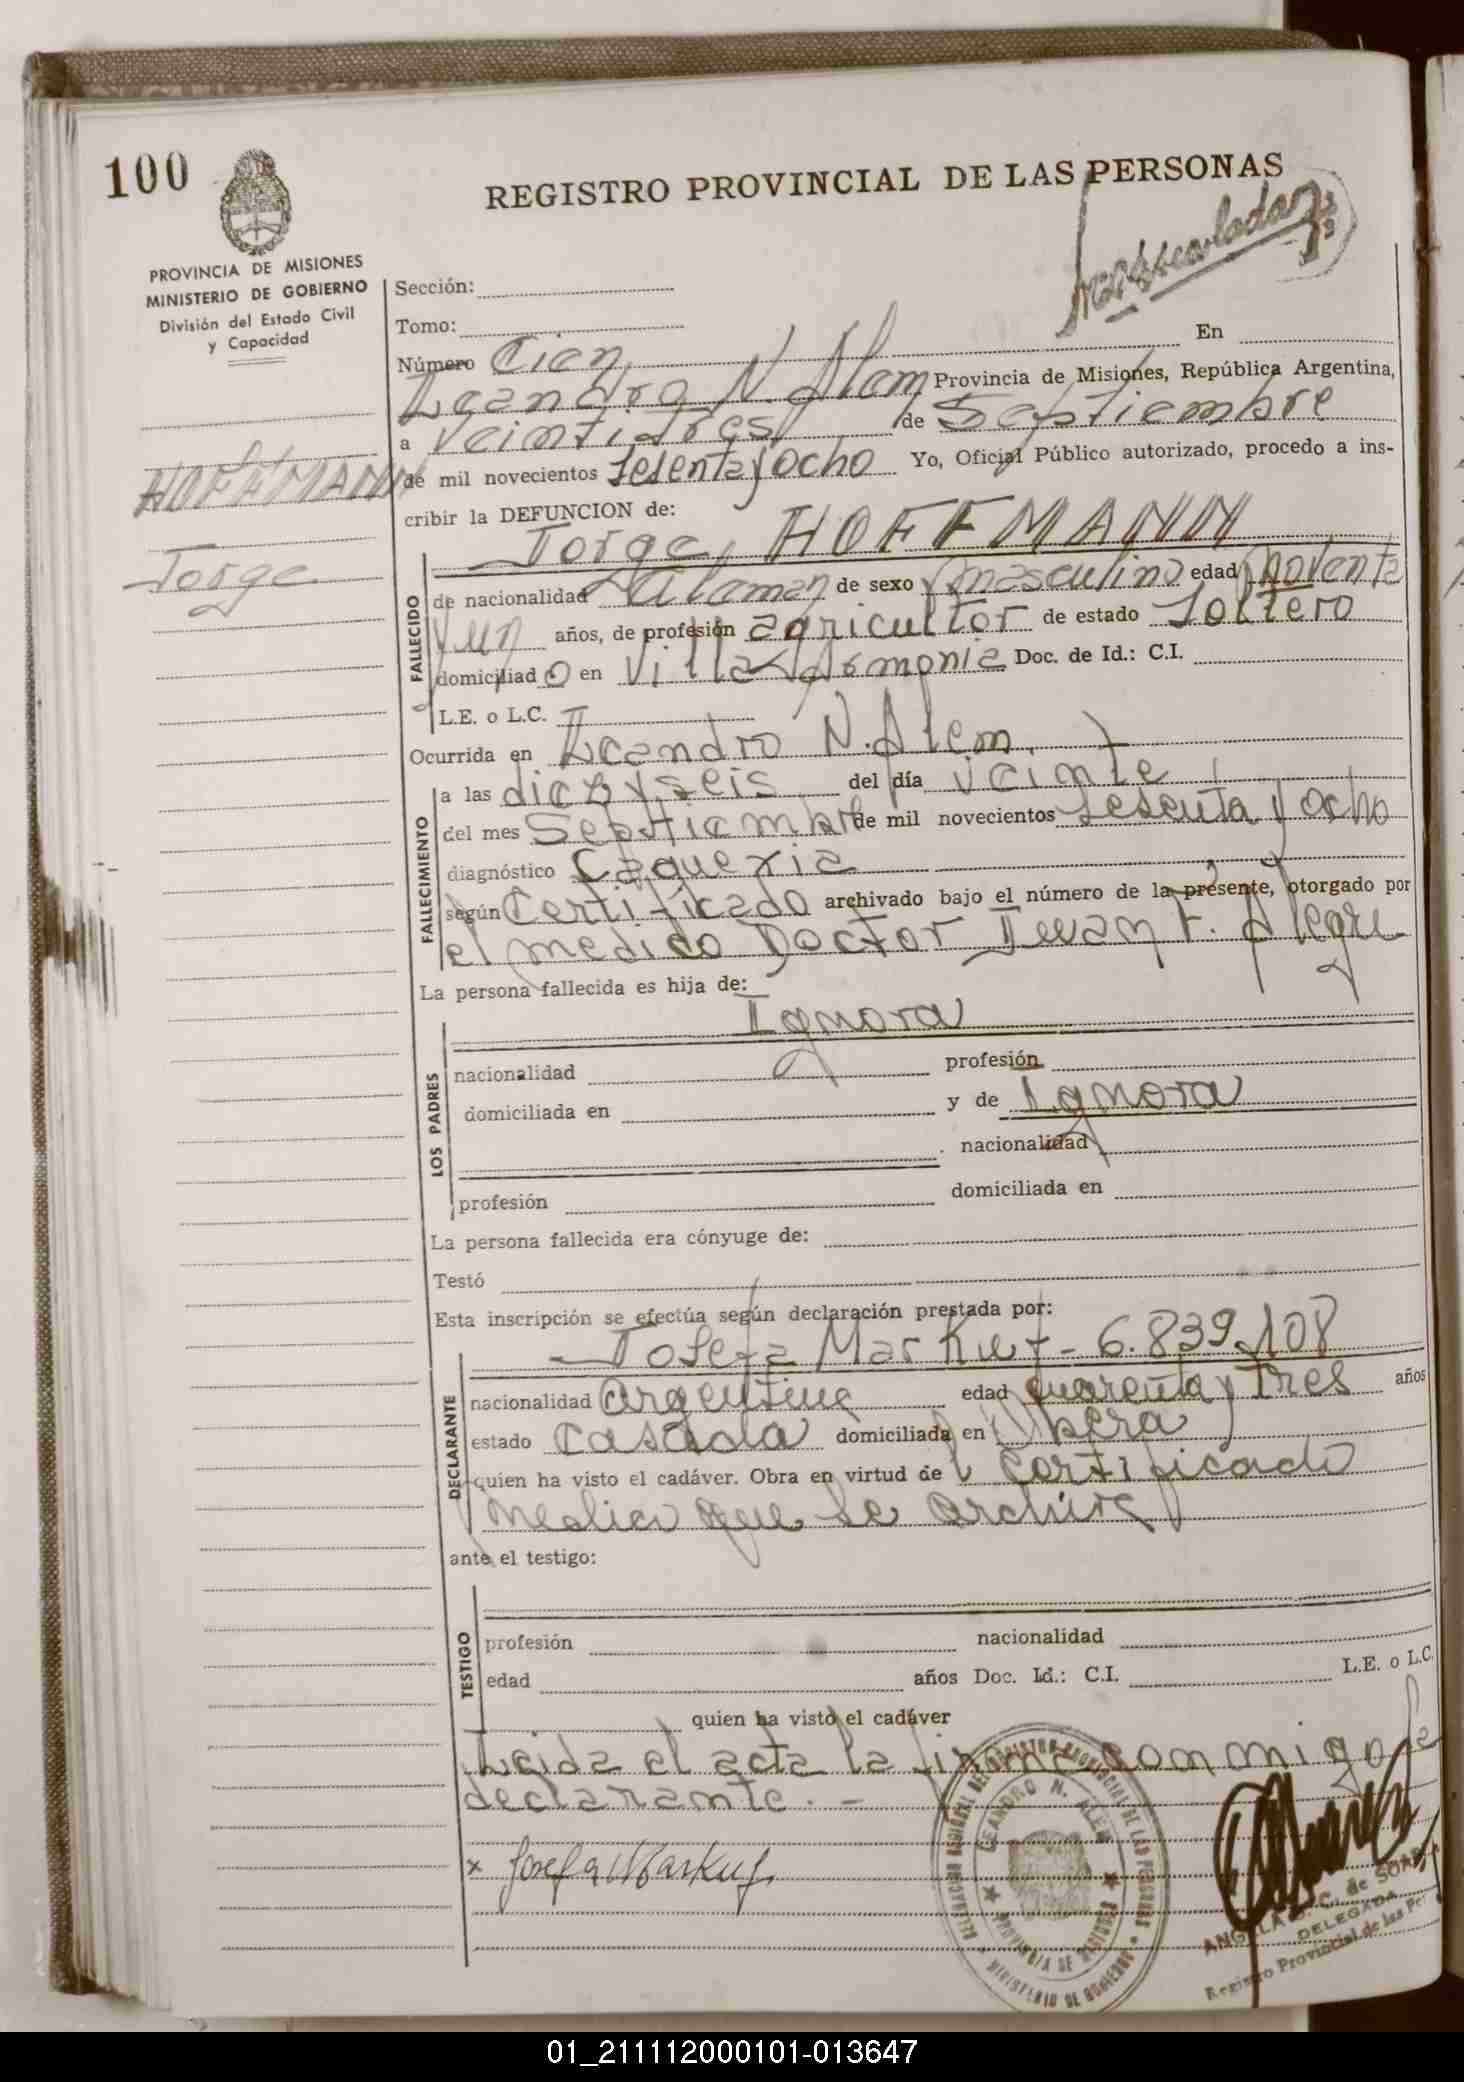 100
REGISTRO PROVINCIAL DE LAS PERSONAS
PROVINCIA DE MISIONES
MINISTERIO DE GOBIERNO
División del Estado Civil
y Capacidad
Sección:
Tomo:
Número Cien En
Leandro N. Alem Provincia de Misiones, República Argentina,
a veintitres de Septiembre
de mil novecientos sesenta y ocho Yo, Oficial Público autorizado, procedo a ins-
cribir la DEFUNCION de:
HOFFMANN
Jorge
Jorge, HOFFMANN
FALLECIDO
de nacionalidad Aleman de sexo masculino edad noventa
y un años, de profesión agricultor de estado Soltero
domiciliado en Villa Armonia Doc. de Id.: C.I.
L.E. o L.C.
Ocurrida en Leandro N. Alem.
FALLECIMIENTO
a las diez y seis del día veinte
del mes Septiembre de mil novecientos sesenta y ocho
diagnóstico Caquexia
según Certificado archivado bajo el número de la presente, otorgado por
el medico Doctor F. Alegre
La persona fallecida es hija de:
LOS PADRES
Ignora
nacionalidad profesión
domiciliada en y de Ignora
nacionalidad
profesión domiciliada en
La persona fallecida era cónyuge de:
Testó
Esta inscripción se efectúa según declaración prestada por:
DECLARANTE
Josefa Markuf - 6.839.108
nacionalidad argentina edad cuarenta y tres años
estado Casada domiciliada en Obera
quien ha visto el cadáver. Obra en virtud de Certificado
medico que se archiva
ante el testigo:
TESTIGO
profesión nacionalidad
edad años Doc. Id.: C.I. L.E. o L.C.
quien ha visto el cadáver
Leida el acta la firma conmigo la
declarante. -
x Josefa Markuf.
LEANDRO N. ALEM
PROVINCIA DE MISIONES
MINISTERIO DE GOBIERNO
DELEGADA
Registro Provincial de las Pe
01_211112000101-013647